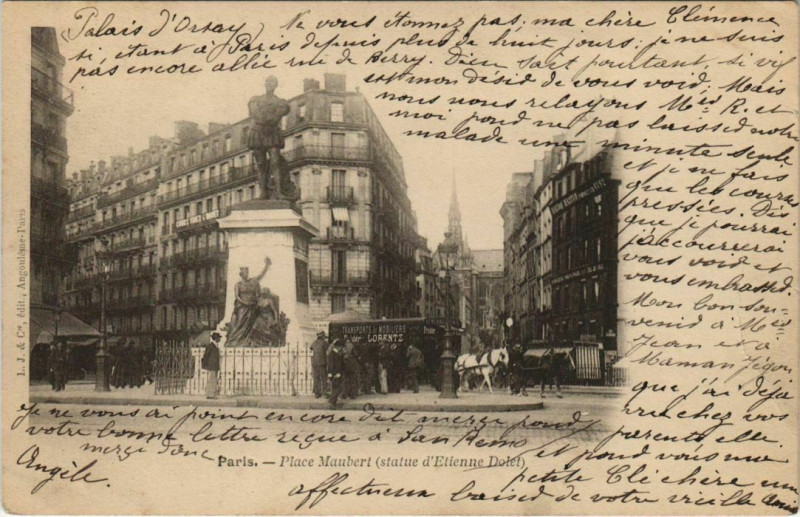 (Palais d'Orsay)
Ne vous étonnez pas, ma chère Clémence
si, étant à Paris depuis plus de huit jours, je ne suis
pas encore allée rue de Berry. Dieu sait pourtant, si vif
est mon désir de vous voir; Mais
nous nous relayons Mlle R. et
moi pour ne pas laisser notre
malade une minute seule
et je ne fais
que les courses
pressées. Dès
que je pourrai
j'accourrerai
vous voir et
vous embrasser.
Mon bon sou-
venir à
Jean et à
Maman
que j'ai déjà
vue chez vos
parents elle.
Je ne vous ai point encore dit merci pour
votre bonne lettre reçue à San Remo
merci donc
et pour vous ma
petite Clé chère une
affectueux baiser de votre vieille amie
Angèle.
TRANSPORTS DE MOBILIER
LORENTZ
L. J. & Cie, édit., Angoulême-Paris
Paris. — Place Maubert (statue d'Etienne Dolet)